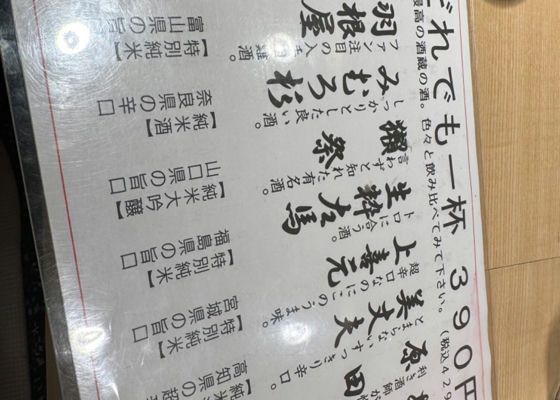 どれでも一杯 390円
最高の酒蔵の酒。色々と飲み比べてみて下さい。(税込429
羽根屋
ファン注目の入
【特別純米】
富山県の旨口
みむろ杉
しっかりとした良い酒。
【純米酒】
奈良県の辛口
獺祭
言わずと知れた有名酒。
【純米大吟醸】
山口県の旨口
生粋左馬
トロに合う酒。
【特別純米】
福島県の旨口
上喜元
超辛口なのにこのうま味。
【特別純米】
宮城県の旨口
美丈夫
すっきり辛口。
【特別純米】
高知県の超
原田
利き酒師が
【純米